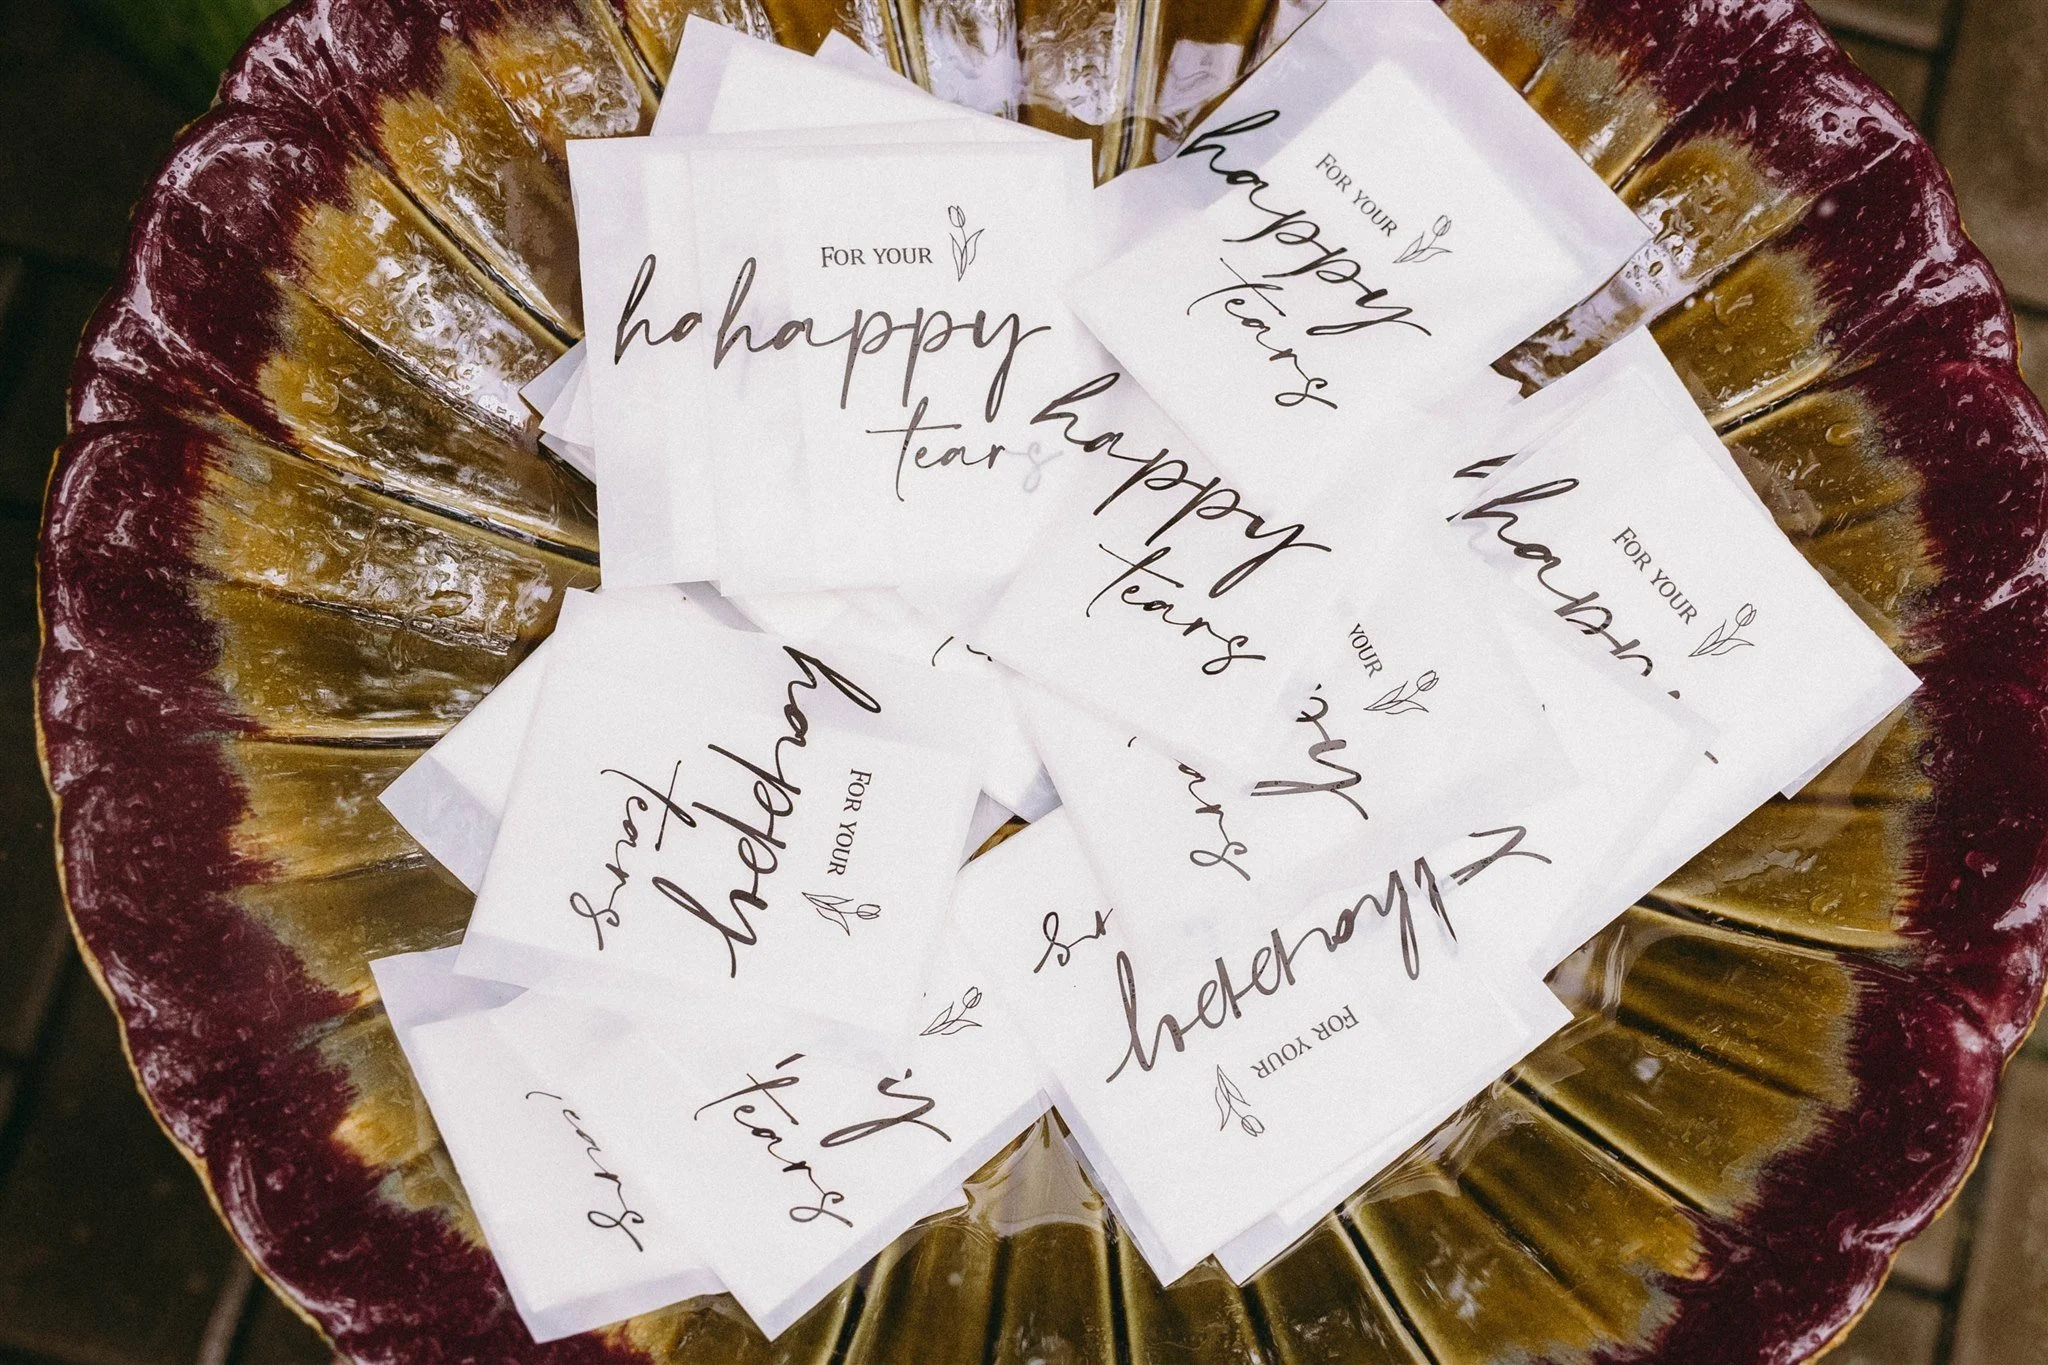 For your
ha happy
tears
For your
happy
tears
happy
tears
your
For your
happy
tears
For your
ears
happy
For your
tears